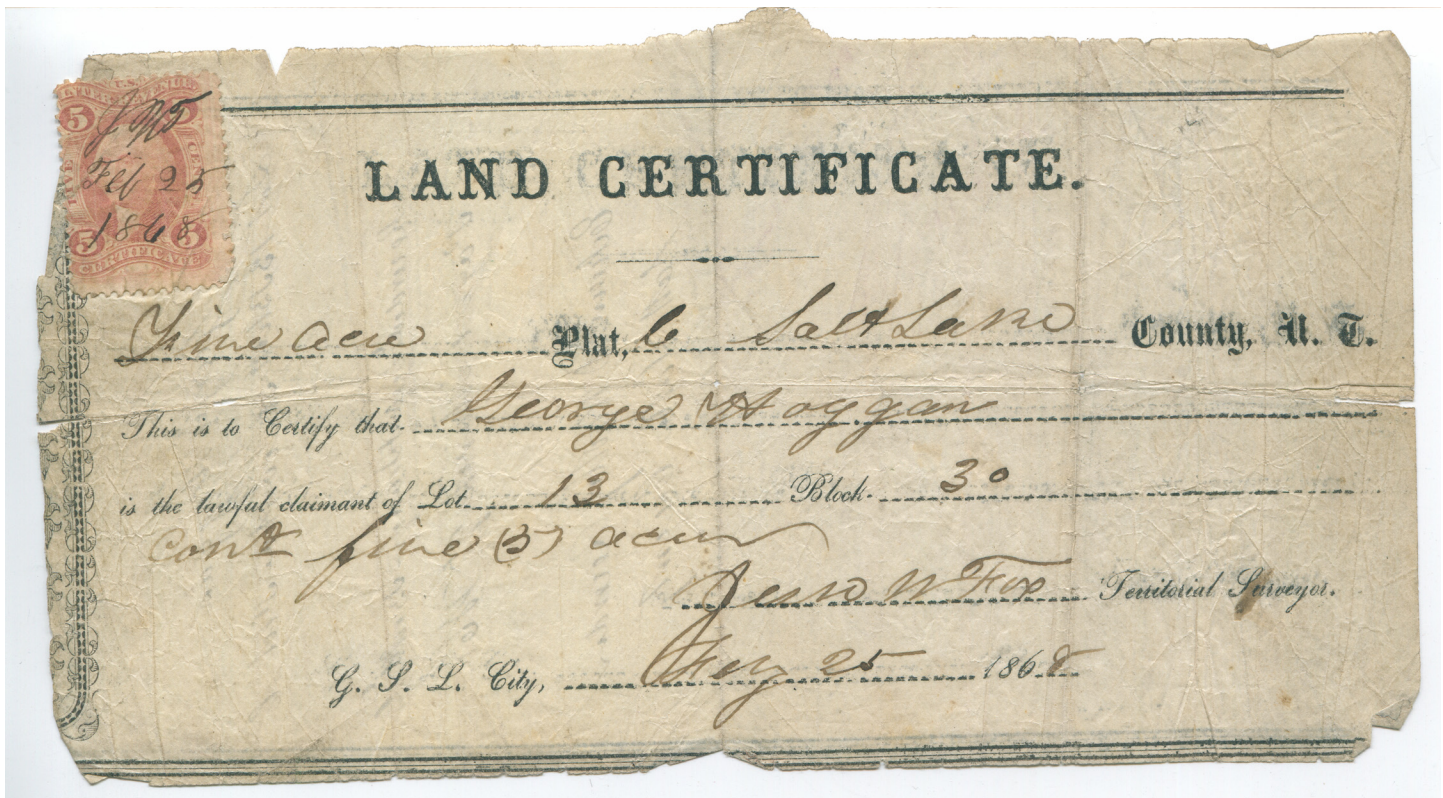 U.S. INTER. REVENUE
5 5
J W F
FIVE CENTS
Feb 25
1868
5 5
CERTIFICATE
LAND CERTIFICATE.
Five acre Plat, C Salt Lake County, U. T.
This is to Certify that George Hoggan
is the lawful claimant of Lot 13 Block 30
cont five (5) acres
Jesse W Fox Territorial Surveyor.
G. S. L. City, Feby 25 1868